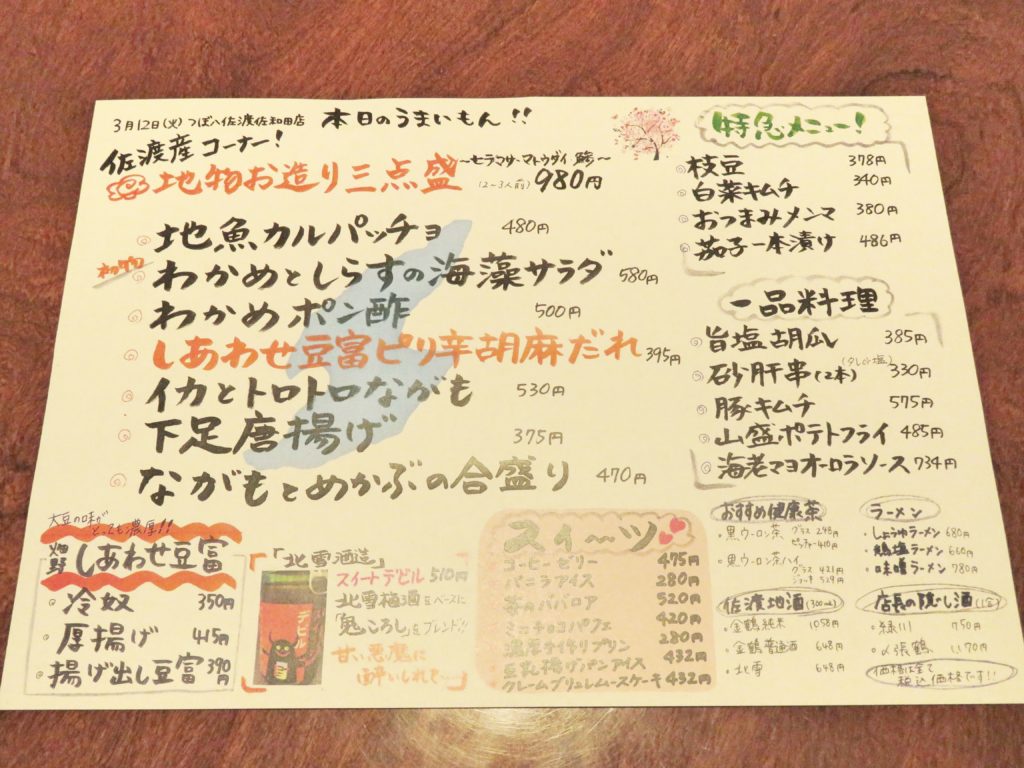 3月12日(火) つぼ八佐渡佐和田店 本日のうまいもん!!
佐渡産コーナー!
地物お造り三点盛 ~ヒラマサ・マトウダイ・鯵~ (2~3人前) 980円
地魚カルパッチョ 480円
わかめとしらすの海藻サラダ 580円
わかめポン酢 500円
しあわせ豆富ピリ辛胡麻だれ 395円
イカとトロトロながも 530円
下足唐揚げ 375円
ながもとめかぶの合盛り 470円
特急メニュー!
枝豆 378円
白菜キムチ 340円
おつまみメンマ 380円
茄子一本漬け 486円
一品料理
旨塩胡瓜 385円
砂肝串(2本) (タレor塩) 330円
豚キムチ 575円
山盛ポテトフライ 485円
海老マヨオーロラソース 734円
大豆の味が
とっても濃厚!!
畑野 しあわせ豆富
冷奴 350円
厚揚げ 415円
揚げ出し豆富 390円
「北雪酒造」
スイートデビル 510円
北雪梅酒をベースに
「鬼ころし」をブレンド!!
甘い悪魔に
酔いしれて…
スイ〜ツ
コーヒーゼリー 475円
バニラアイス 280円
ババロア 520円
ミニチョコパフェ 420円
プリン 280円
豆乳揚げパンアイス 432円
クレームブリュレムースケーキ 432円
おすすめ健康茶
黒ウーロン茶 グラス 298円
ピッチャー 410円
黒ウーロン茶ハイ
グラス 421円
ジョッキ 529円
佐渡地酒 (300ml)
金鶴 純米 1058円
金鶴 普通酒 648円
北雪 648円
ラーメン
しょうゆラーメン 680円
鶏塩ラーメン 660円
味噌ラーメン 780円
店長の隠し酒 (1合)
緑川 750円
〆張鶴 1,170円
価格は全て
税込価格です!!